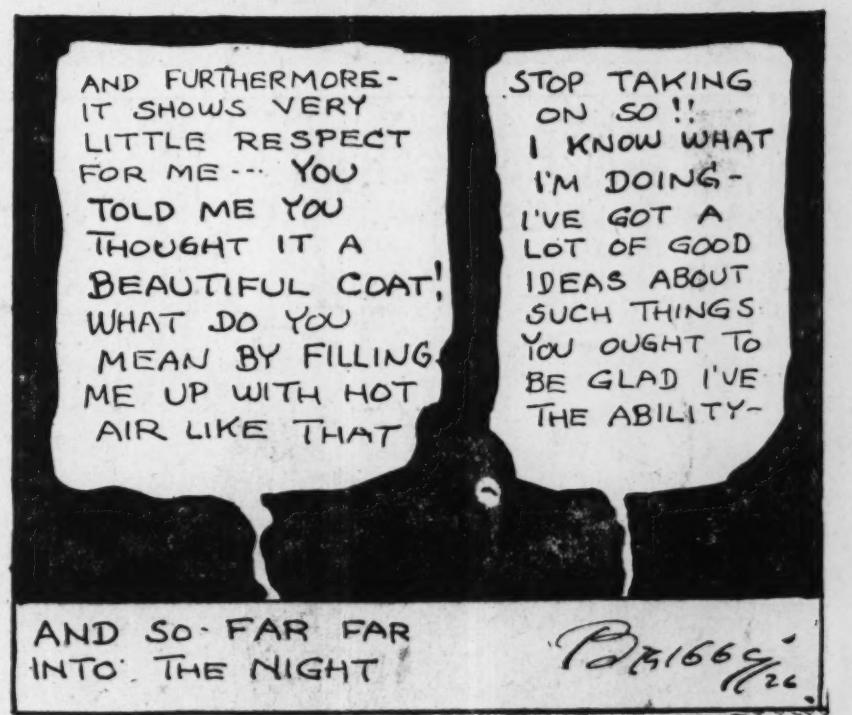 AND FURTHERMORE-
IT SHOWS VERY
LITTLE RESPECT
FOR ME --- YOU
TOLD ME YOU
THOUGHT IT A
BEAUTIFUL COAT!
WHAT DO YOU
MEAN BY FILLING
ME UP WITH HOT
AIR LIKE THAT
STOP TAKING
ON SO!!
I KNOW WHAT
I'M DOING-
I'VE GOT A
LOT OF GOOD
IDEAS ABOUT
SUCH THINGS
YOU OUGHT TO
BE GLAD I'VE
THE ABILITY-
AND SO- FAR FAR
INTO THE NIGHT
BRIGGS
26